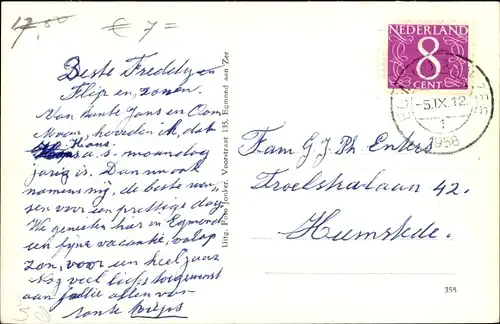 17,50
€ 7 =
Beste Freddy en
Flip en, zonen.
Van tante Jans en Oom
hoorden ik, dat
Hans
a.s. maandag
jarig is. Dan ook
namens mij, de beste wen-
sen voor een prettige dag.
We genieten hier in Egmond
een fijne vacantie, volop
zon, voor een heel jaar
Nog veel liefs toegewenst
aan jullie allen van
tante
Uitg. Foto Jonker, Voorstraat 135, Egmond aan Zee
NEDERLAND
8
CENT
-5.IX.12
1958
Fam G. J. Ph Enters
Troelstralaan 42.
Heemstede.
358